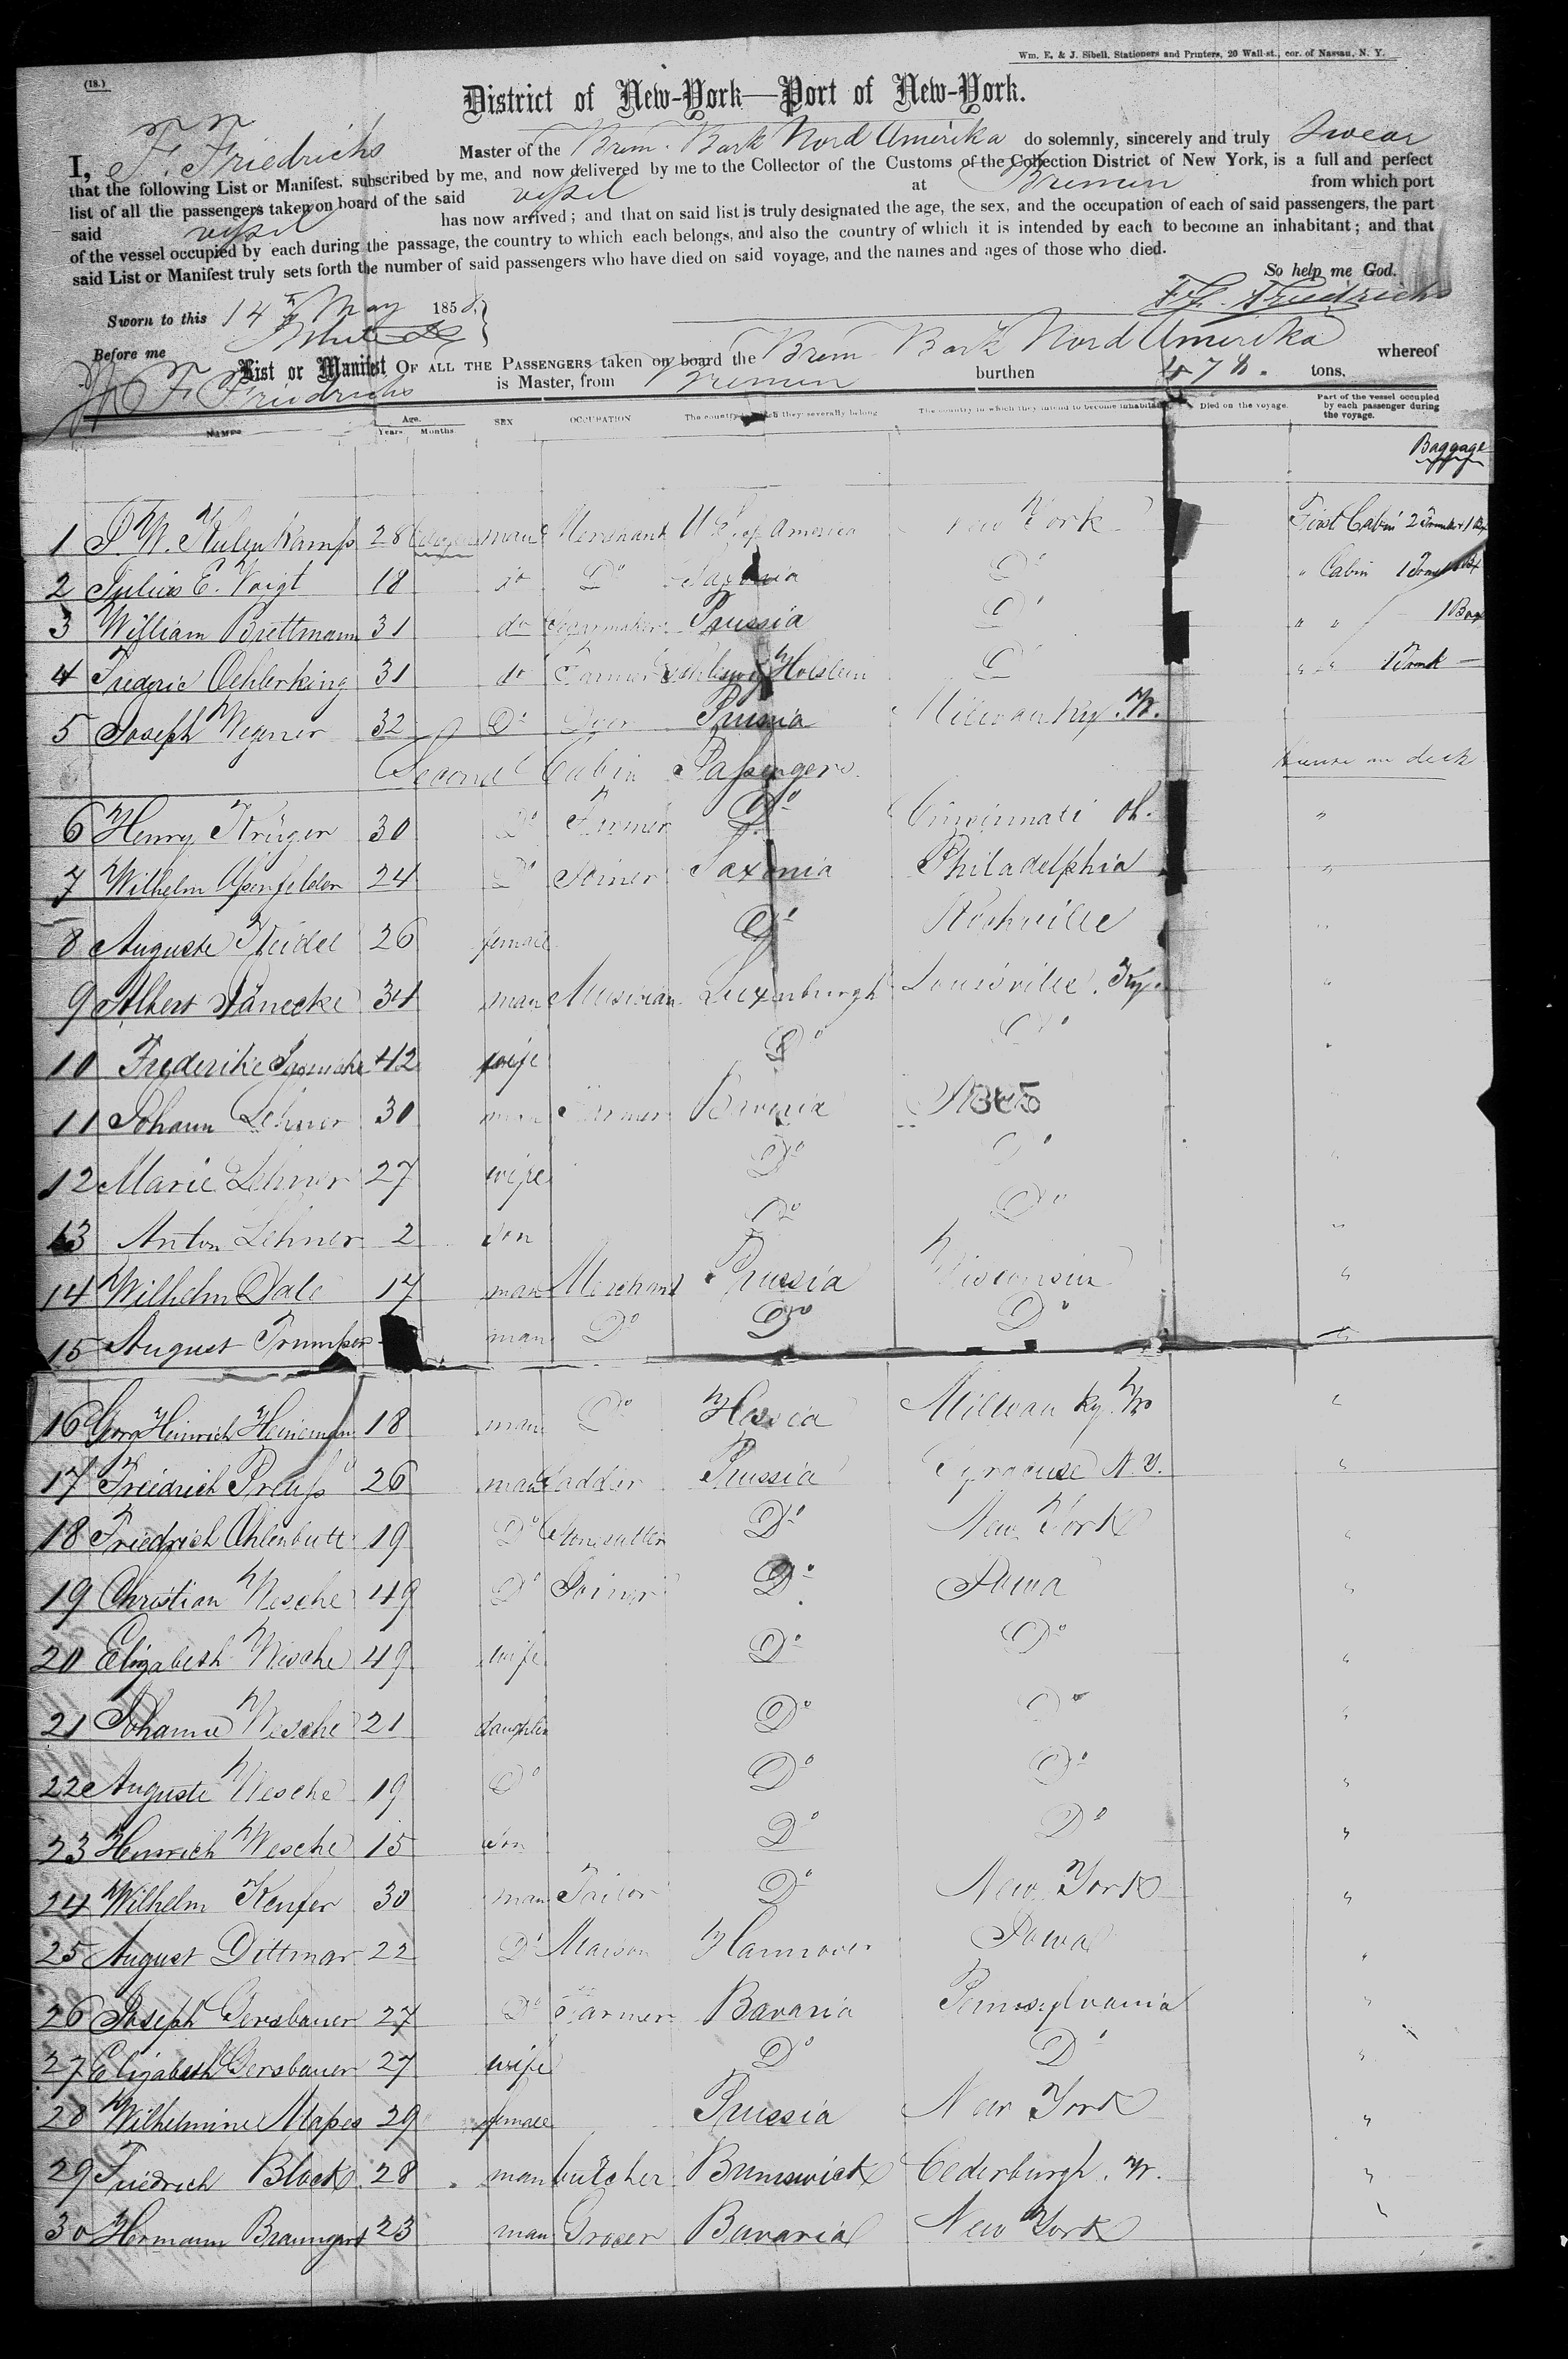 (18.)
Wm. E. & J. Sibell, Stationers and Printers, 20 Wall-st., cor. of Nassau, N. Y.
District of New-York—Port of New-York.
I, F. Friedrichs Master of the Brem. Bark Nord Amerika do solemnly, sincerely and truly Swear
that the following List or Manifest, subscribed by me, and now delivered by me to the Collector of the Customs of the Collection District of New York, is a full and perfect
list of all the passengers taken on board of the said vessel at Bremen from which port
said vessel has now arrived; and that on said list is truly designated the age, the sex, and the occupation of each of said passengers, the part
of the vessel occupied by each during the passage, the country to which each belongs, and also the country of which it is intended by each to become an inhabitant; and that
said List or Manifest truly sets forth the number of said passengers who have died on said voyage, and the names and ages of those who died.
So help me God.
Sworn to this 14th May 1858 Friedrichs
Before me
List or Manifest OF ALL THE PASSENGERS taken on board the Brem Bark Nord Amerika whereof
F Friedrichs is Master, from Bremen burthen tons.
NAMES Age. Years. Months. SEX OCCUPATION The country to which they severally belong The country in which they intend to become inhabitants Died on the voyage. Part of the vessel occupied by each passenger during the voyage.
Baggage
1 28 man Merchant U S. of America New York First Cabin 2 Trunks 1 Box
2 Julius E. Voigt 18 do Do Saxonia Do " Cabin
3 William Brettmann 31 do Cigarmaker Prussia Do " " 1 Box
4 Frederic Oehlerking 31 do Farmer Holstein Do " " 1 Trunk
5 Joseph Wegner 32 Do Prussia Milwauky. W.
Second Cabin Passengers House on deck
6 Henry Krüger 30 Do Farmer Do Cincinnati Oh. "
7 Wilhelm 24 Do Joiner Saxonia Philadelphia "
8 Auguste Heidel 26 female Do "
9 Albert Jänecke 34 man Musician Luxemburgh Louisville. Ky. "
10 Frederike 42 wife Do Do "
11 Johann Lehner 30 man Farmer Bavaria
12 Marie Lehner 27 wife Do Do "
13 Anton Lehner 2 son Do Do "
14 Wilhelm Dale 17 man Merchant Prussia Wisconsin "
15 August Trumper man Do Do Do "
16 Georg Heinrich Heineman 18 man Do Hessia Milwauky. W. "
17 Friedrich Preuss 26 man Saddler Prussia Syracuse N.Y. "
18 Friedrich Ohlenbutt 19 Do Stonecutter Do New York "
19 Christian Wesche 49 Do Joiner Do Iowa "
20 Elizabeth Wesche 49 wife Do Do "
21 Johanne Wesche 21 daughter Do Do "
22 Auguste Wesche 19 Do Do Do "
23 Heinrich Wesche 15 son Do Do "
24 Wilhelm Keufer 30 man Tailor Do New York "
25 August Dittmar 22 Do Maison Hannover Iowa "
26 Joseph Gersbauer 27 Do Farmer Bavaria Pennsylvania "
27 Elizabeth Gersbauer 27 wife Do Do "
28 Wilhelmine Mapes 29 female Prussia New York "
29 Friedrich Block 28 man butcher Brunswick Cederburgh. W. "
30 Hermann Braungart 23 man Grocer Bavaria New York "